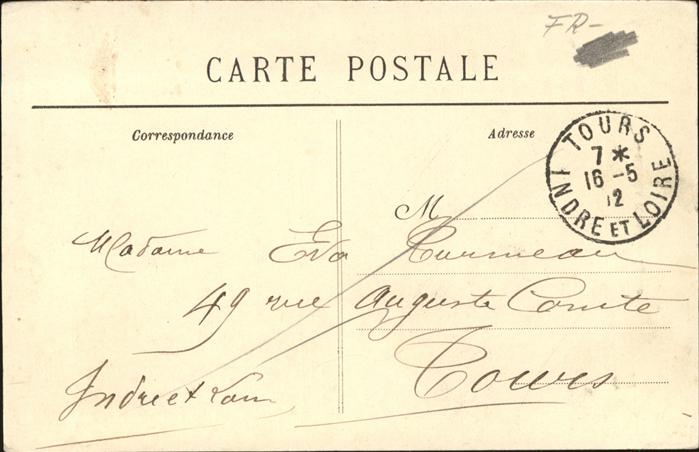 FR-
CARTE POSTALE
Correspondance
Adresse
TOURS
7 *
16 -5
12
INDRE ET LOIRE
M
Madame Eva
49 rue Auguste Comte
Tours
Indre et Loire